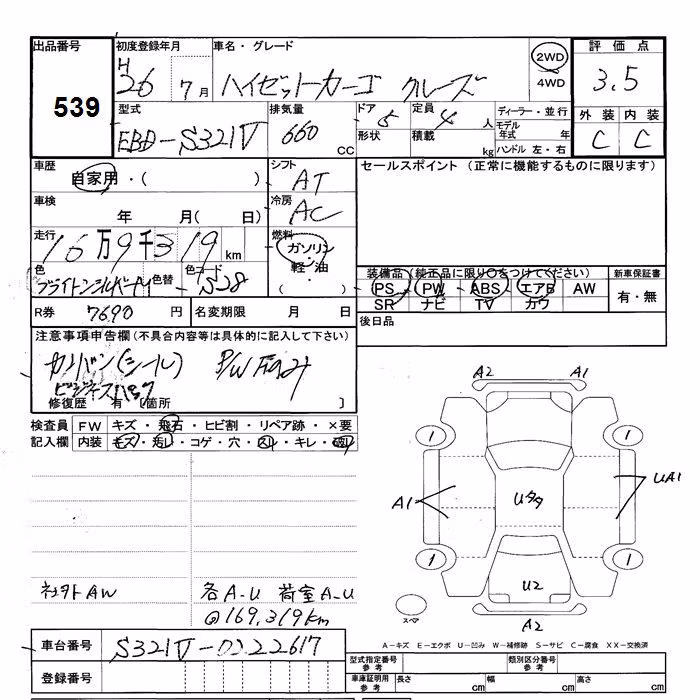 出品番号 初度登録年月 車名・グレード 2WD 4WD 評価点
539 H 26 7月 ハイゼットカーゴ クルーズ 3.5
型式 排気量 ドア 定員 ディーラー・並行 外装 内装
EBD-S321V 660 CC 5 4人 モデル年式 年 C C
形状 積載 kg ハンドル 左・右
車歴 自家用・( ) シフト AT セールスポイント (正常に機能するものに限ります)
車検 年 月( 日) 冷房 AC
走行 16万9千319km 燃料 ガソリン・軽・油・( )
色 色替 色コード S28 装備品(純正品に限り○をつけてください) 新車保証書
PS PW ABS エアB AW 有・無
SR ナビ TV カワ
R券 7690円 名変期限 月 日 後日品
注意事項申告欄(不具合内容等は具体的に記入して下さい)
カンバン(シール)
ビジネスパック
修復歴 有 [箇所 ]
A2 A1
検査員 FW キズ・飛石・ヒビ割・リペア跡・×要
記入欄 内装 キズ・汚レ・コゲ・穴・スレ・キレ・
1 1
A1 Uタタ UA1
1 1
社外AW 各A-U 荷室A-U
@169,319km
U2
スペア A2
車台番号 S321V-0222617
A-キズ E-エクボ U-凹み W-補修跡 S-サビ C-腐食 XX-交換済
登録番号 型式指定番号 参考 類別区分番号 参考
車庫証明用 参考 長さ cm 幅 cm 高さ cm